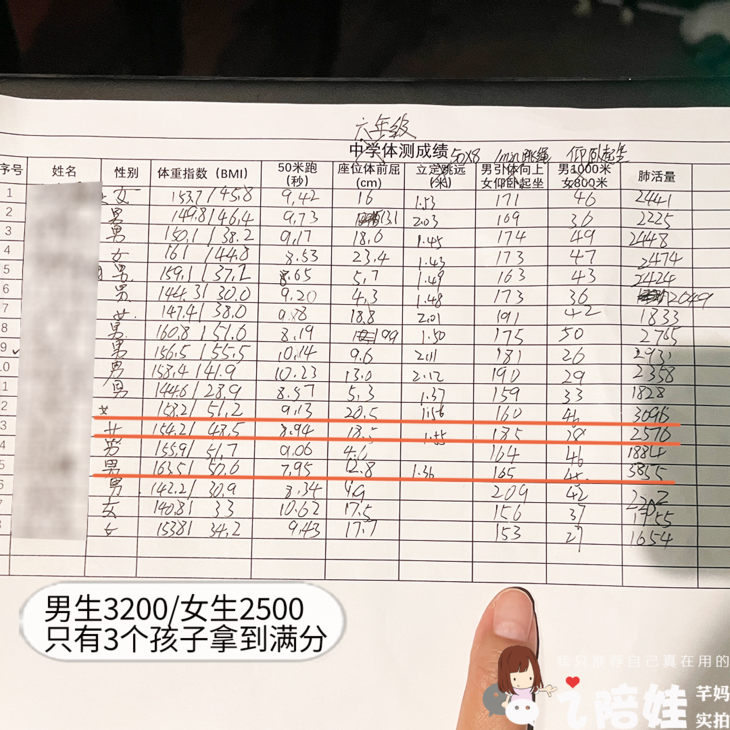 六年级
中学体测成绩 50X8 1min跳绳 仰卧起坐
序号 姓名 性别 体重指数（BMI） 50米跑（秒） 座位体前屈（cm） 立定跳远（米） 男引体向上 女仰卧起坐 男1000米 女800米 肺活量
1 女 153.7/45.8 9.42 16 1.53 171 46 2441
2 男 149.8/46.4 9.73 13.1 2.03 109 36 2225
3 男 150.1/38.2 9.17 18.6 1.45 174 49 2448
4 女 161/44.8 8.53 23.4 1.43 173 47 2474
5 男 159.1/37.2 8.65 5.7 1.49 163 43 2424
6 男 144.3/30.0 9.20 4.3 1.48 173 36 2049
7 女 147.4/38.0 18.8 2.01 191 42 1833
8 男 160.8/51.6 8.19 1.50 175 50 2765
9 男 156.5/55.5 10.14 9.6 2.01 181 26 2931
0 男 158.4/41.9 10.23 13.0 2.12 190 29 2358
1 男 144.6/28.9 8.57 5.3 1.37 159 33 1828
2 女 158.2/51.2 9.13 20.5 1.56 160 46 3096
3 女 154.2/48.5 8.94 18.5 185 2576
4 男 155.9/51.7 9.06 4.6 164 46 1884
5 男 163.5/50.6 7.95 12.8 1.36 165
6 男 142.2/30.9 8.34 209 42
7 女 140.8/33 10.62 17.5 156 37 1755
8 女 153.8/34.2 9.43 17.7 153 27 1654
男生3200/女生2500
只有3个孩子拿到满分
陪娃
芊妈
实拍